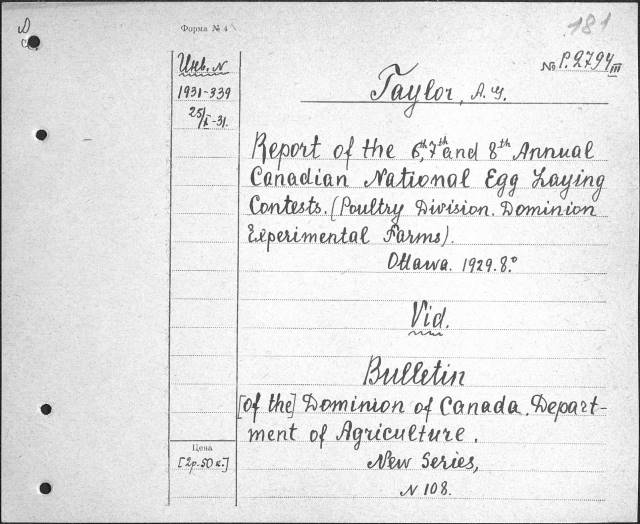 Форма № 4
181
Инв. N
№ P.2794 III
1931-339
25/I-31.
Taylor, A. G.
Report of the 6th, 7th and 8th Annual
Canadian National Egg Laying
Contests. (Poultry Division. Dominion
Experimental Farms).
Ottawa. 1929. 8.°
Vid.
Bulletin
[of the] Dominion of Canada. Depart-
ment of Agriculture.
Цена
[2р.50к.]
New Series,
N 108.